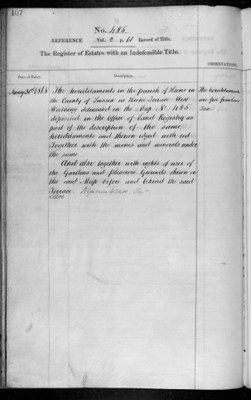 107
No. 485.
REFERENCE Vol. 2 p. 61 Record of Title.
The Register of Estates with an Indefeasible Title.
OBSERVATIONS.
Date of Entry.
Description.
The hereditaments in the parish of Heene in
the County of Sussex in Heene Terrace West
Worthing delineated in the Map No. 485
deposited in the Office of Land Registry as
part of the description of the same
hereditaments and thereon edged with red
Together with the mines and minerals under
the same
And also together with rights of user of
the Gardens and pleasure Grounds shown in
the said Map before and behind the said
Terrace.
The hereditaments
are